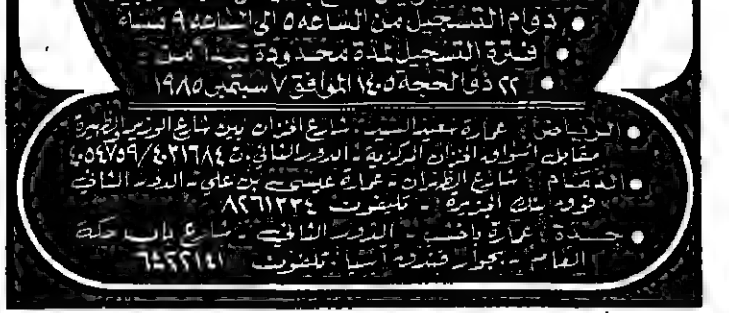 • دوام التسجيل من الساعه ٥ الى الساعه ٩ مساء
• فترة التسجيل لمدة محدودة تبدأ من
• ٢٢ ذو الحجة ١٤٠٥ الموافق ٧ سبتمبر ١٩٨٥
• الرياض : عمارة سعيد السيد : شارع الخزان بين شارع الوزير والظهيرة
مقابل اسواق الخزان المركزية - الدور الثاني. ت ٤٠٣١٦٨٤/٤٠٥٤٧٥٩
• الدمام : شارع الظهران - عمارة عيسى بن علي - الدور الثاني
فوق بنك الجزيرة - تليفون ٨٢٦١٢٣٤
• جدة : عمارة باخشب - الدور الثاني - شارع باب مكة
القاسم - بجوار فندق آسيا. تليفون ٦٤٢٢١٤١